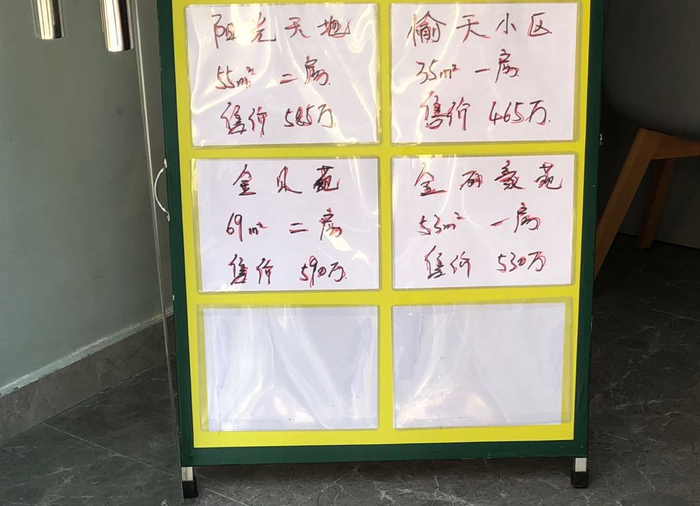 阳光天地
55m² 二房
售价 585万
愉天小区
35m² 一房
售价 465万
金贝苑
69m² 二房
售价 590万
金丽豪苑
53m² 一房
售价 530万